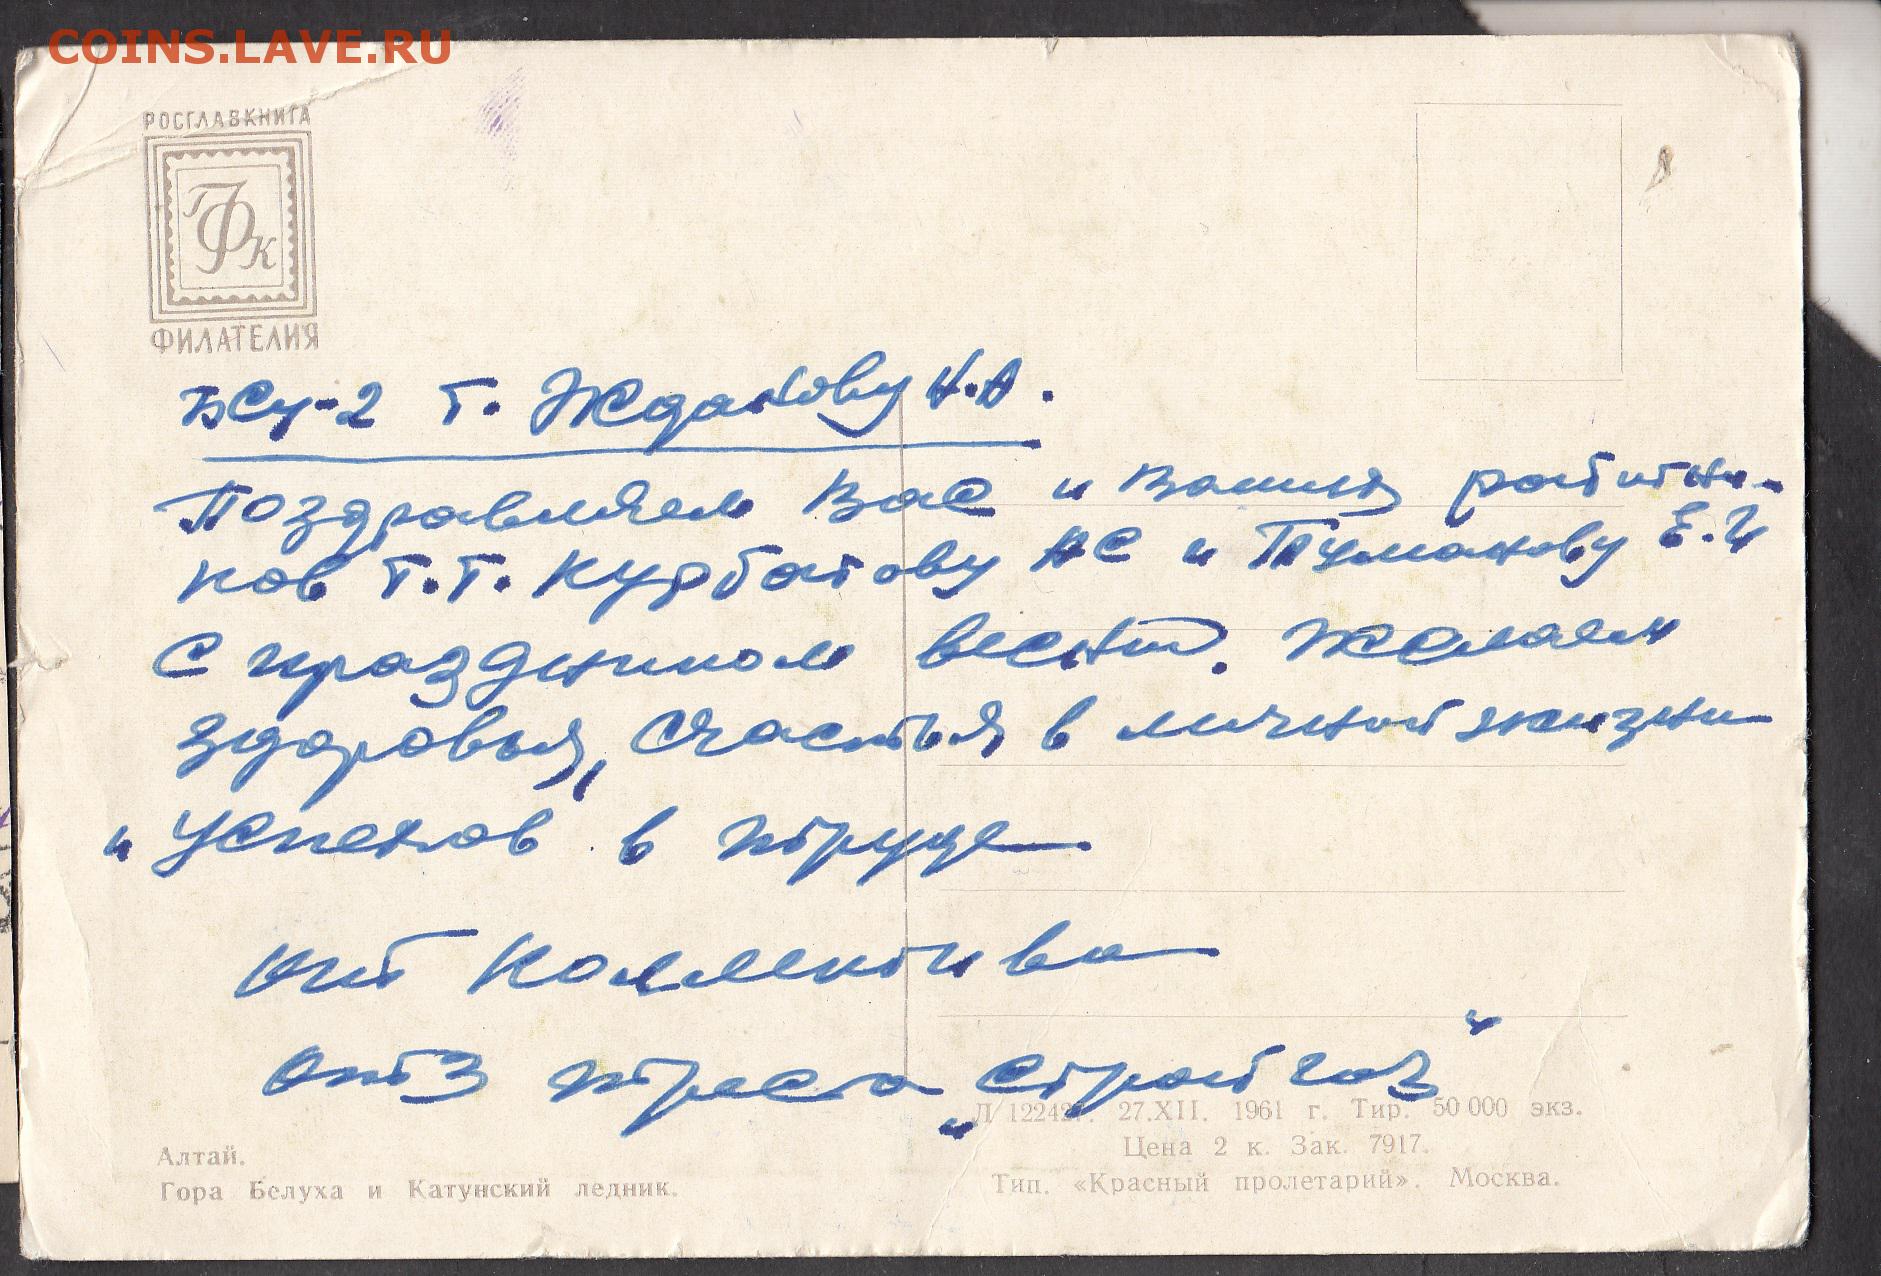 COINS.LAVE.RU
РОСГЛАВКНИГА
ГФК
ФИЛАТЕЛИЯ
БСУ-2 т. Жданову Н.А.
Поздравляем Вас и Ваших работни-
ков т.т. Курбатову НС и Туманову Е.И
С праздником весны. Желаем
здоровья, счастья в личной жизни
и успехов в труде
От коллектива
ОТЗ треста „Стройгаз"
Л 122427. 27.XII. 1961 г. Тир. 50 000 экз.
Цена 2 к. Зак. 7917.
Тип. «Красный пролетарий». Москва.
Алтай.
Гора Белуха и Катунский ледник.